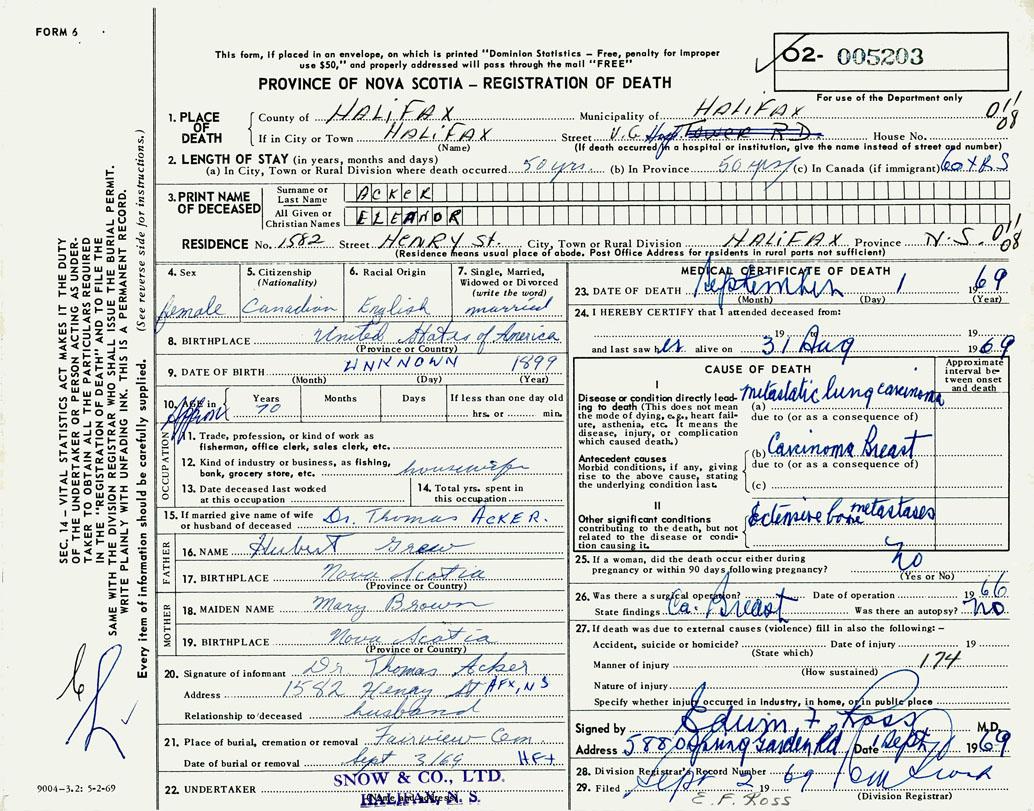 FORM 6
This form, if placed in an envelope, on which is printed "Dominion Statistics – Free, penalty for improper
use $50," and properly addressed will pass through the mail "FREE"
PROVINCE OF NOVA SCOTIA – REGISTRATION OF DEATH
02- 005203
For use of the Department only
SEC. 14 – VITAL STATISTICS ACT MAKES IT THE DUTY
OF THE UNDERTAKER OR PERSON ACTING AS UNDER-
TAKER TO OBTAIN ALL THE PARTICULARS REQUIRED
IN THE "REGISTRATION OF DEATH" AND TO FILE THE
SAME WITH THE DIVISION REGISTRAR WHO SHALL ISSUE THE BURIAL PERMIT.
WRITE PLAINLY WITH UNFADING INK. THIS IS A PERMANENT RECORD.
Every item of information should be carefully supplied. (See reverse side for instructions.)
1. PLACE OF DEATH
County of HALIFAX Municipality of HALIFAX 011/08
If in City or Town HALIFAX Street V.G. Hosp TOWER RD. House No.
(Name) (If death occurred in a hospital or institution, give the name instead of street and number)
2. LENGTH OF STAY (in years, months and days)
(a) In City, Town or Rural Division where death occurred 50 yrs (b) In Province 50 yrs (c) In Canada (if immigrant) 60 YRS
3. PRINT NAME OF DECEASED
Surname or Last Name ACKER
All Given or Christian Names ELEANOR
RESIDENCE No. 1582 Street HENRY St. City, Town or Rural Division HALIFAX Province N.S. 011/08
(Residence means usual place of abode. Post Office Address for residents in rural parts not sufficient)
4. Sex
female
5. Citizenship (Nationality)
Canadian
6. Racial Origin
English
7. Single, Married, Widowed or Divorced (write the word)
married
8. BIRTHPLACE United States of America
(Province or Country)
9. DATE OF BIRTH UNKNOWN 1899
(Month) (Day) (Year)
10. AGE in Approx Years 70 Months Days If less than one day old
hrs. or min.
OCCUPATION
11. Trade, profession, or kind of work as
fisherman, office clerk, sales clerk, etc.
12. Kind of industry or business, as fishing,
bank, grocery store, etc. housewife
13. Date deceased last worked
at this occupation
14. Total yrs. spent in
this occupation
15. If married give name of wife
or husband of deceased Dr. Thomas ACKER.
FATHER
16. NAME Hubert Grew
17. BIRTHPLACE Nova Scotia
(Province or Country)
MOTHER
18. MAIDEN NAME Mary Brown
19. BIRTHPLACE Nova Scotia
(Province or Country)
20. Signature of informant Dr Thomas Acker
Address 1582 Henry St HFX, NS
Relationship to deceased husband
21. Place of burial, cremation or removal Fairview Cem
Date of burial or removal Sept 3/69 HFX
22. UNDERTAKER SNOW & CO., LTD.
HALIFAX, N. S.
9004-3.2: 5-2-69
MEDICAL CERTIFICATE OF DEATH
23. DATE OF DEATH September 1 1969
(Month) (Day) (Year)
24. I HEREBY CERTIFY that I attended deceased from:
19 19
and last saw her alive on 31 Aug 1969
CAUSE OF DEATH
Approximate interval between onset and death
I
Disease or condition directly lead-
ing to death (This does not
mean the mode of dying, e.g., heart fail-
ure, asthenia, etc. It means the
disease, injury, or complication
which caused death.)
(a) metastatic lung carcinoma
due to (or as a consequence of)
Antecedent causes
Morbid conditions, if any, giving
rise to the above cause, stating
the underlying condition last.
(b) Carcinoma Breast
due to (or as a consequence of)
(c)
II
Other significant conditions
contributing to the death, but not
related to the disease or condi-
tion causing it.
Extensive bone metastases
25. If a woman, did the death occur either during
pregnancy or within 90 days following pregnancy? No
(Yes or No)
26. Was there a surgical operation? Date of operation 1966
State findings Ca. Breast Was there an autopsy? no
27. If death was due to external causes (violence) fill in also the following: –
Accident, suicide or homicide? Date of injury 19
(State which)
Manner of injury 174
(How sustained)
Nature of injury
Specify whether injury occurred in Industry, in home, or in public place
Signed by Edwin F. Ross M.D.
Address 5880 Spring Garden Rd Date 1 Sept 1969
28. Division Registrar's Record Number
29. Filed Sept 2 1969
(Division Registrar)
E. F. ROSS